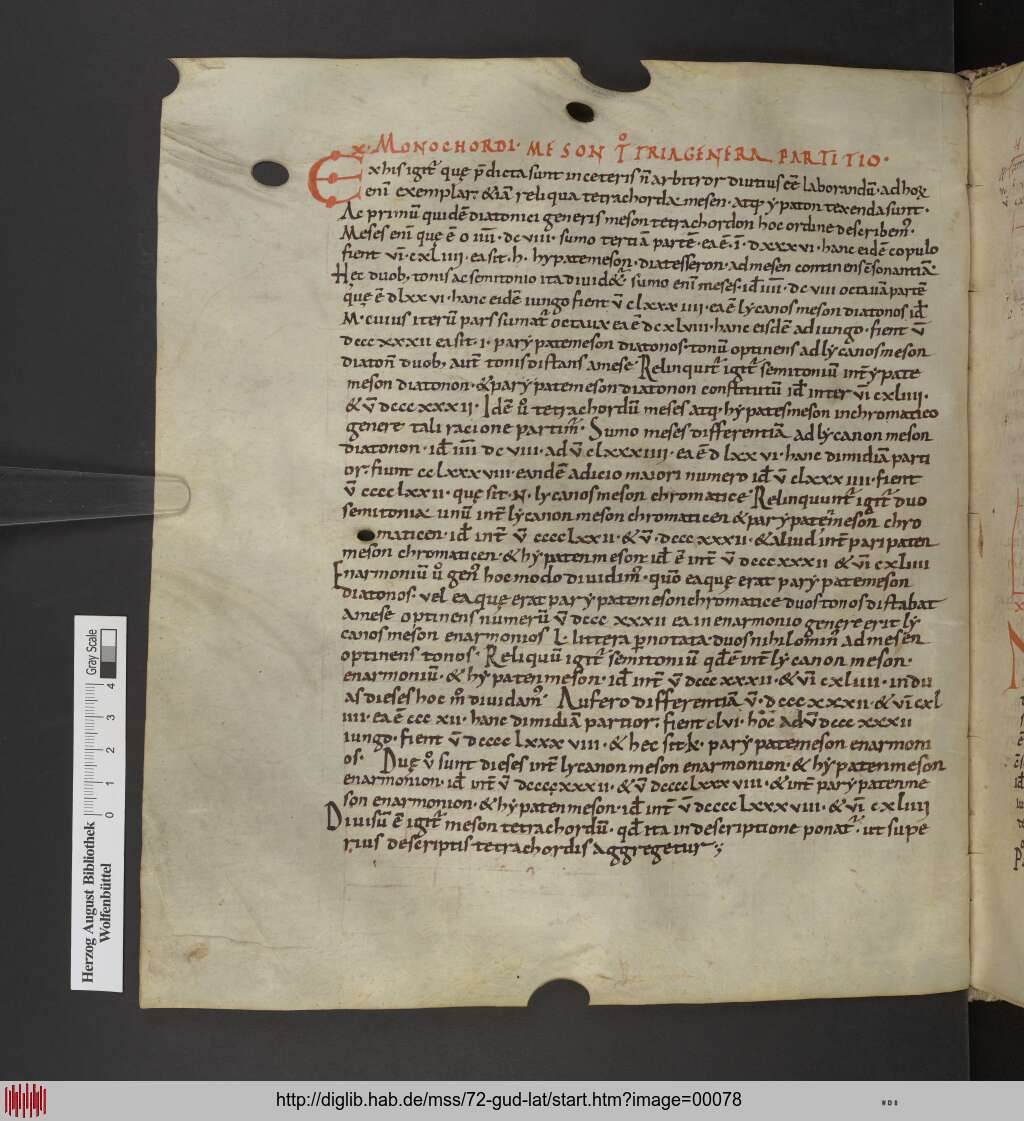 X· MONOCHORDI· MESON P̊ TRIA GENERA PARTITIO·
Ex his igit᷑ quę p̄dicta sunt in ceteris n̄ arbitror diutius eē̄ laborandū· ad hoꝝ
enī exemplar· &iā reliqua tetrachorda mesen· atq; ypaton texenda sunt·
Ac primū quidē diatonici generis meson tetrachordon hoc ordine describem᷒·
Meses enī que ē o iiii· dc viii· sumo tertiā partē· ea ē· ī· d xxxvi· hanc eidē copulo
fient vī· cxliiii· ea sit· h· hypate meson· diatesseron· ad mesen continens ɔ̄sonantiā·
Hęc duob; tonis ac semitonio ita diuid&᷑ sumo enī meses· id ē̄ iiii· dc viii octauā partē
que ē d lxxvi· hanc eidē iungo fient v̄ clxxxiiii· ea ē lycanos meson diatonos id ē̄
M· cuius iterū pars sumat᷑ octaua ea ē dcxlviii· hanc eisdē adiungo· fient v̄
dccc xxxii ea sit· i· parypate meson diatonos· tonū optinens ad lycanos meson
diatonū duob; aut̄ tonis distans a mese· Relinquit᷑ igit᷑ semitoniū int̄ ypate
meson diatonon· & parypate meson diatonon constitutū id ē̄ inter vī cxliiii·
& v̄ dccc xxxii· Idē ů tetrachordū meses atq; hypates meson in chromatico
genere tali racione partim᷒· Sumo meses differentiā ad lycanon meson
diatonon· id ē̄ iiii dc viii· ad v̄ clxxxiiii· ea ē d lxxvi· hanc dimidiā parti
or· fiunt cclxxxviii· eandē adicio maiori numero id ē̄ v̄ clxxxiiii· fient
v̄ cccc lxxii· quę sit· N· lycanos meson chromatice· Relinquunt᷑ igit᷑ duo
semitonia unū int̄ lycanon meson chromaticen & parypatē meson chro
maticen· id ē̄ int̄ v̄ cccc lxxii· & v̄· dccc xxxii· & aliud int̄ paripaten
meson chromaticen· & hypaten meson· id ē̄ int̄ v̄ dccc xxxii & vī cxliiii
Enarmoniū ů gen᷒ hoc modo diuidim᷒· quō ea quę erat parypate meson
diatonos· vel ea quę erat parypate meson chromatice duos tonos distabat
a mese optinens numerū v̄ dccc xxxii ea in enarmonio genere erit ly
canos meson enarmonios L· littera ꝑnotata· duos nihilomin᷒ ad mesen
optinens tonos· Reliquū igit᷑ semitoniū qđ ē int̄ lycanon meson·
enarmoniū· & hypaten meson· id ē̄ int̄ v̄ dccc xxxii· & vī cxliiii· in du
as dieses hoc m̊ diuidam᷒· Aufero differentiā v̄· dccc xxxii· & vī cxl
iiii· ea ē ccc xii· hanc dimidiā partior· fient clvi· hoc ad v̄ dccc xxxii
iungo· fient v̄ dcccc lxxxviii· & hec sit· k· parypate meson enarmoni
os· Duę ů sunt dieses int̄ lycanon meson enarmonion· & hypaten meson
enarmonion· id ē̄ int̄ v̄ dcccc xxxii· & v̄ dcccc lxxxviii· & int̄ parypaten me
son enarmonion· & hypaten meson· id ē̄ int̄ v̄ dcccc lxxxviii· & vī cxliiii
Diuisū ē igit᷑ meson tetrachordū· qđ ita in descriptione ponat᷑· ut supe
rius descriptis tetrachordis aggregetur;
Herzog August Bibliothek
Wolfenbüttel
0 1 2 3 4
Gray Scale
http://diglib.hab.de/mss/72-gud-lat/start.htm?image=00078